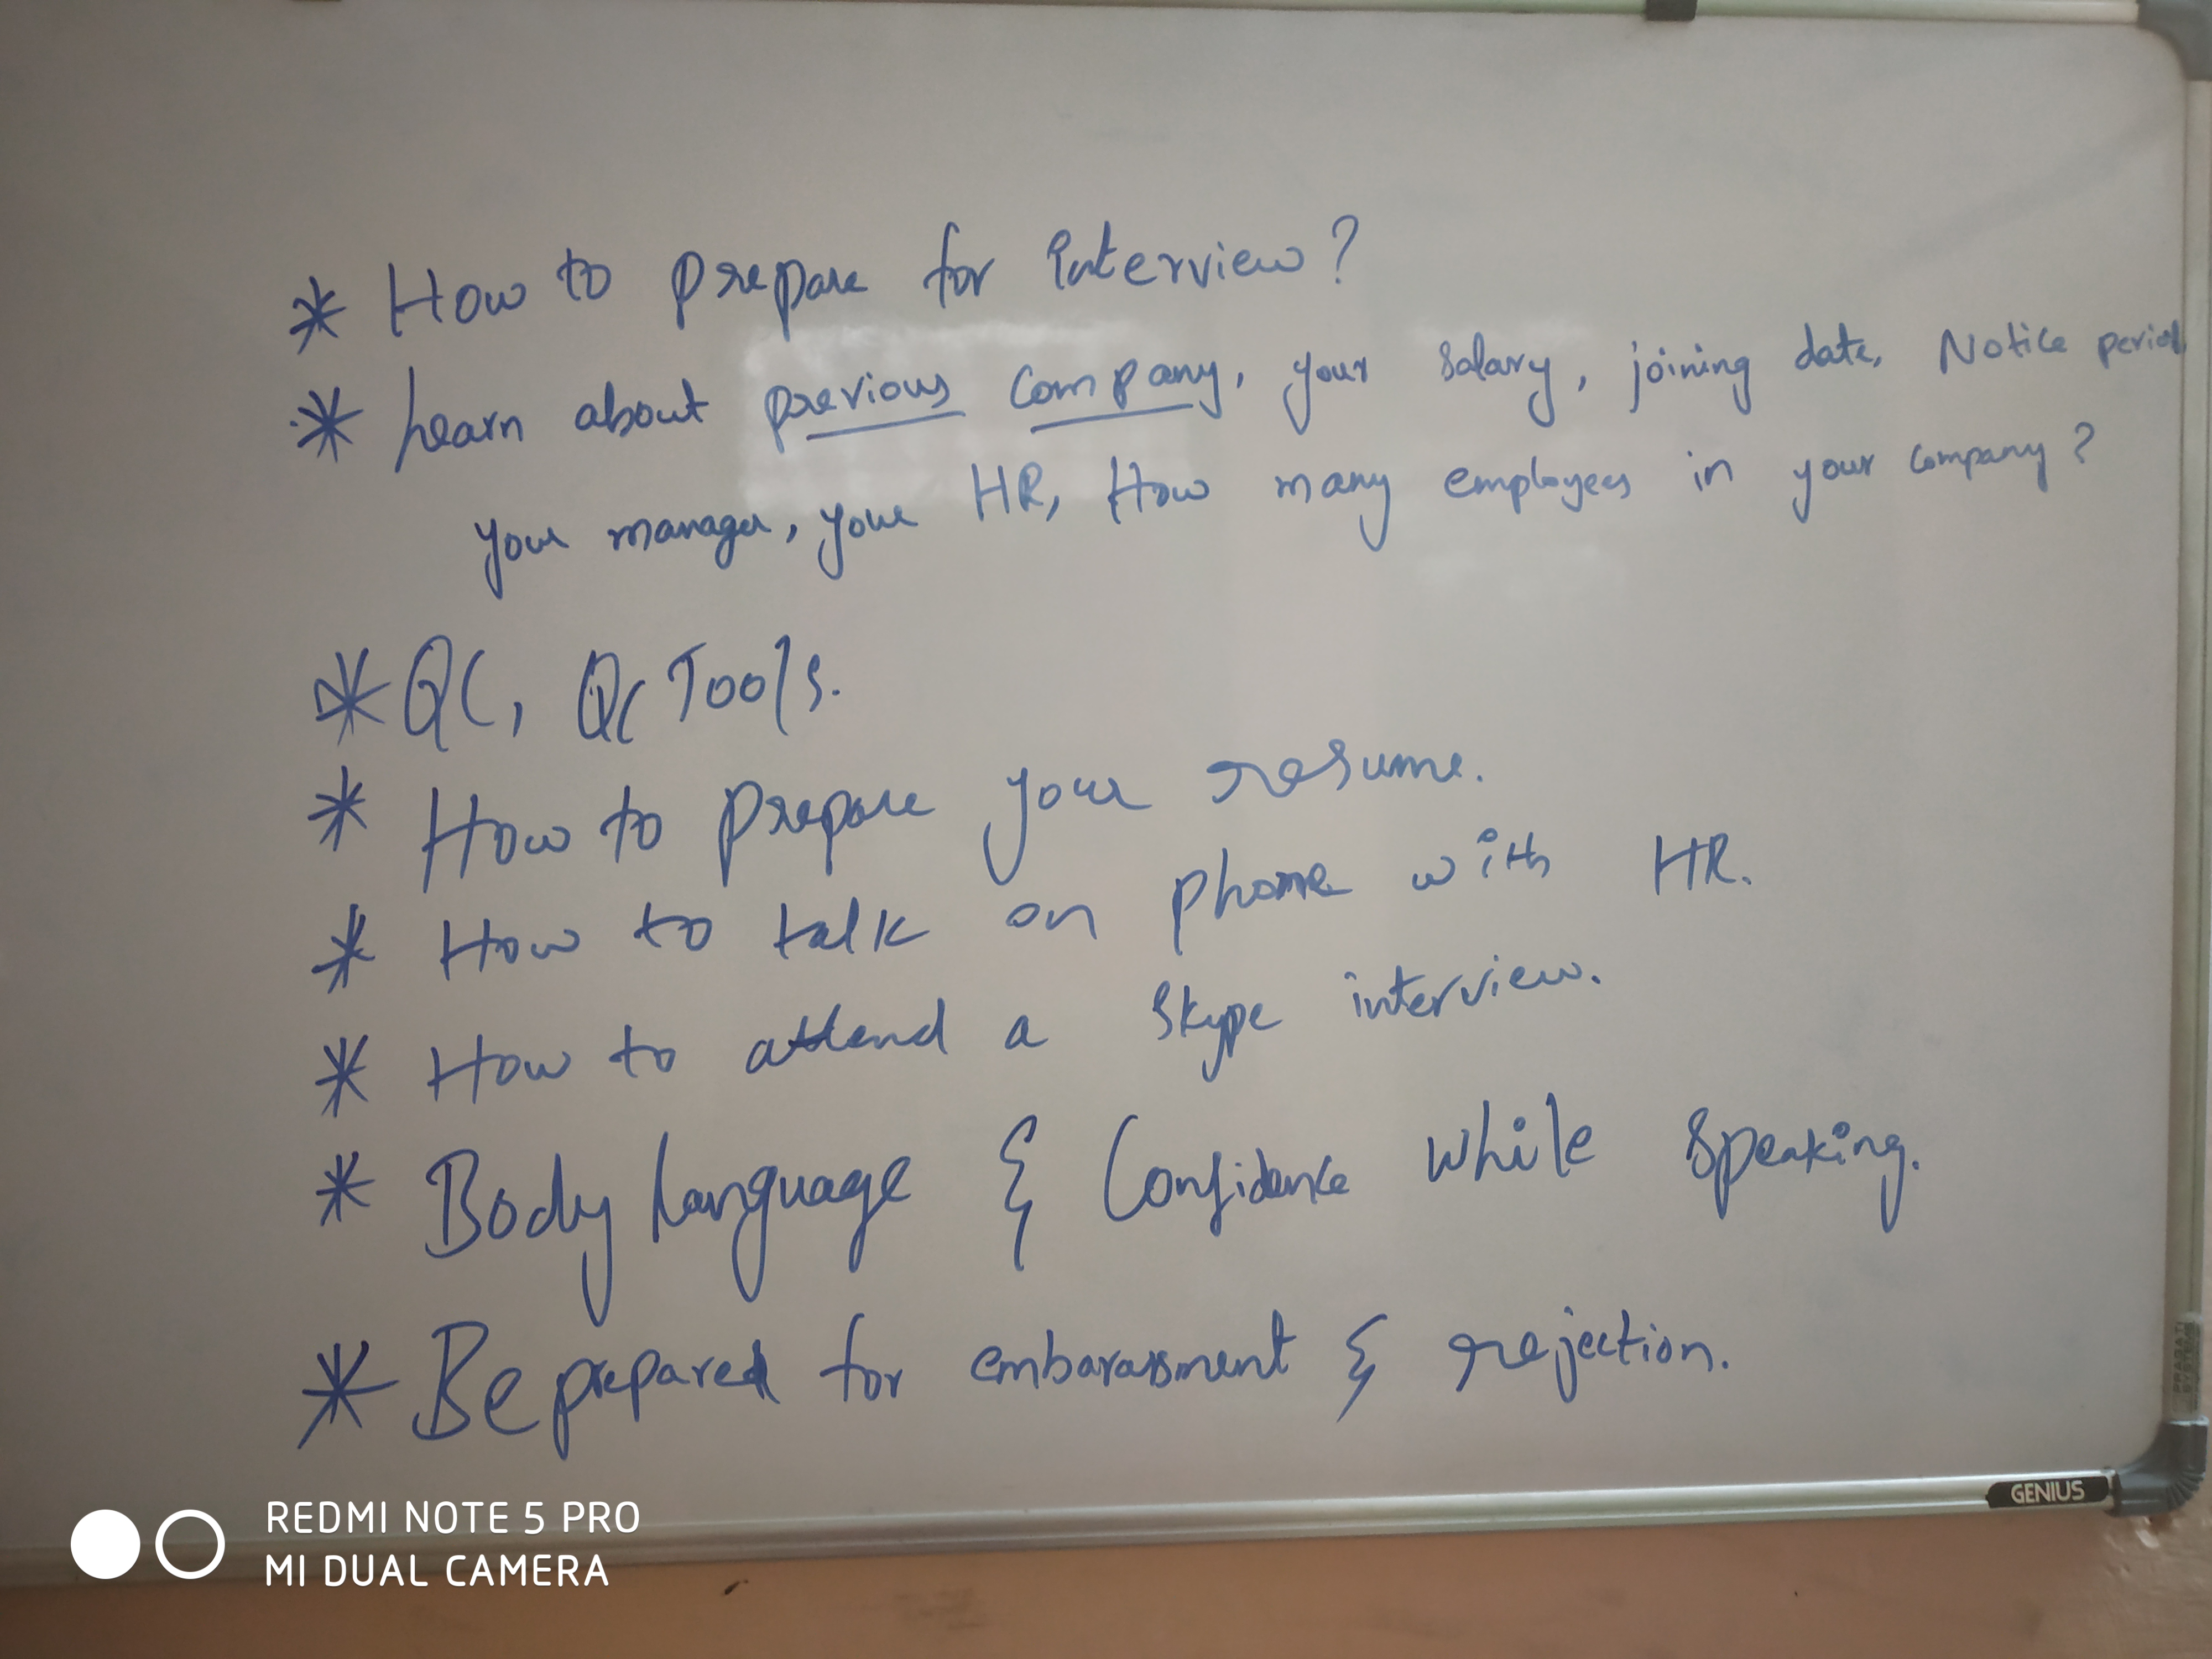 * How to prepare for Interview?
* Learn about previous company, your salary, joining date, Notice period
your manager, your HR, How many employees in your company?
* QC, QC Tools.
* How to prepare your resume.
* How to talk on phone with HR.
* How to attend a Skype interview.
* Body language & Confidence while speaking.
* Be prepared for embarassment & rejection.
GENIUS
REDMI NOTE 5 PRO
MI DUAL CAMERA